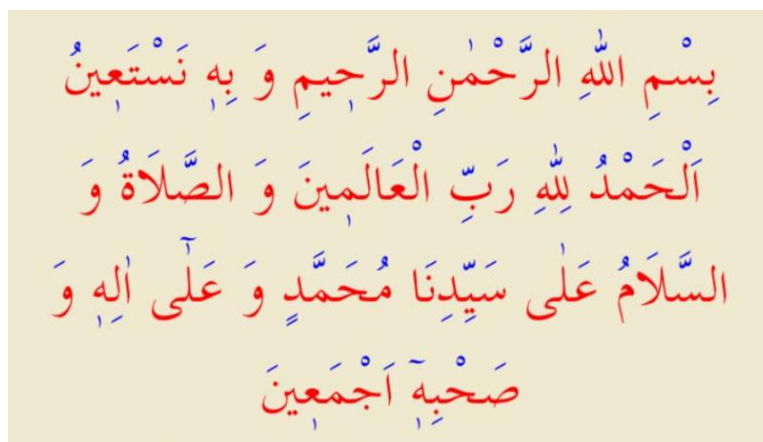 بِسْمِ اللّٰهِ الرَّحْمٰنِ الرَّحٖيمِ وَ بِهٖ نَسْتَعٖينُ
اَلْحَمْدُ لِلّٰهِ رَبِّ الْعَالَمٖينَ وَ الصَّلَاةُ وَ
السَّلَامُ عَلٰى سَيِّدِنَا مُحَمَّدٍ وَ عَلٰٓى اٰلِهٖ وَ
صَحْبِهٖٓ اَجْمَعٖينَ